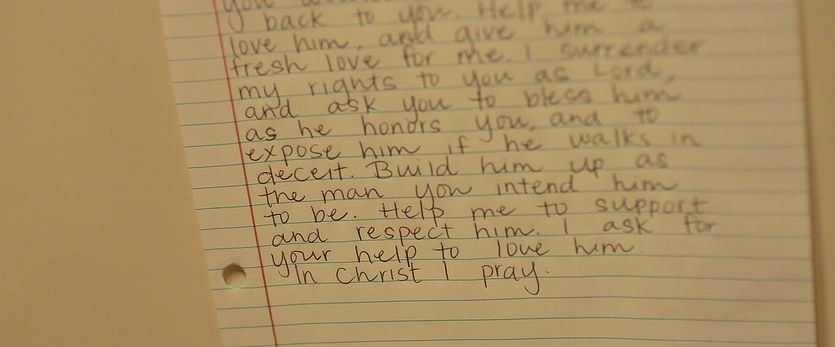 back to you. Help me to
love him, and give him a
fresh love for me. I surrender
my rights to you as Lord,
and ask you to bless him
as he honors you, and to
expose him if he walks in
deceit. Build him up as
the man you intend him
to be. Help me to support
and respect him. I ask for
your help to love him.
In Christ I pray.